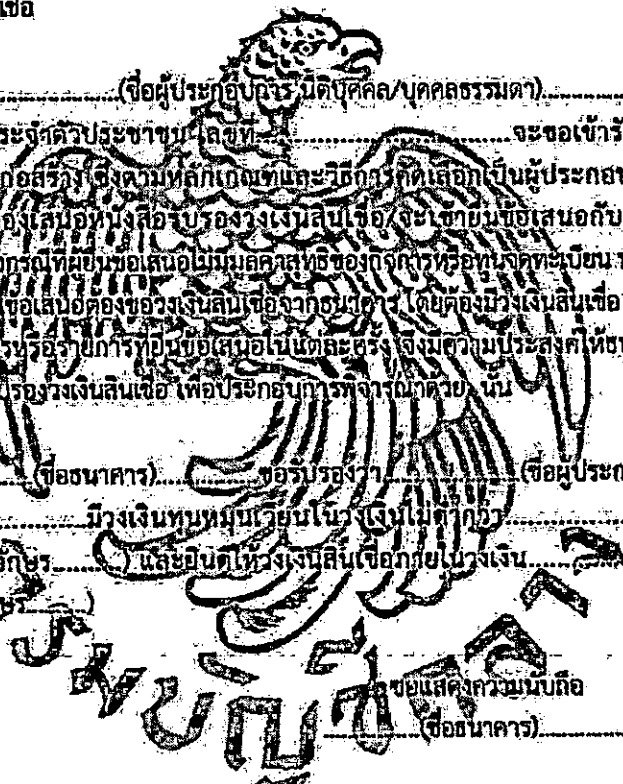 เชื่อ
....................(ชื่อผู้ประกอบการ นิติบุคคล/บุคคลธรรมดา)....................
ระจำตัวประชาชน เลขที่....................จะขอเข้ารั
ก่อสร้าง ซึ่งตามหลักเกณฑ์และวิธีการคัดเลือกเป็นผู้ประกอบ
องเสนอหนังสือรับรองวงเงินสินเชื่อ/จะเข้ายื่นข้อเสนอกับ
กรณีที่ผู้ยื่นข้อเสนอไม่มีมูลค่าสุทธิของกิจการหรือทุนจดทะเบียน
ข้อเสนอต้องขอวงเงินสินเชื่อจากธนาคาร โดยต้องมีวงเงินสินเชื่อ
รหรือรายการที่ยื่นข้อเสนอในแต่ละครั้ง จึงมีความประสงค์ให้ธน
บรองวงเงินสินเชื่อ เพื่อประกอบการพิจารณาด้วย นั้น
..........(ชื่อธนาคาร)..........ขอรับรองว่า....................(ชื่อผู้ประก
....................มีวงเงินทุนหมุนเวียนในวงเงินไม่ต่ำกว่า....................
ักษร..........) และยินดีให้วงเงินสินเชื่อภายในวงเงิน....................
ษร..........)
ขอแสดงความนับถือ
....................(ชื่อธนาคาร)....................